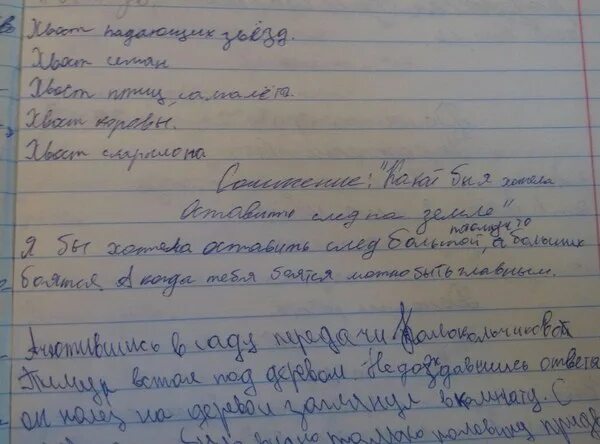 Хвост падающих звёзд.
Хвост семян
Хвост птиц, самолёта.
Хвост коровы.
Хвост
Сочинение: "Какой бы я хотела
Оставить след на земле"
потому что
Я бы хотела оставить след большой, а больших
боятся. А когда тебя боятся можно быть главным.
в саду передачи Колокольчиковой
Тимур встал под деревом. Не дождавшись ответа
он полез на дерево заглянул в комнату. С
только половина